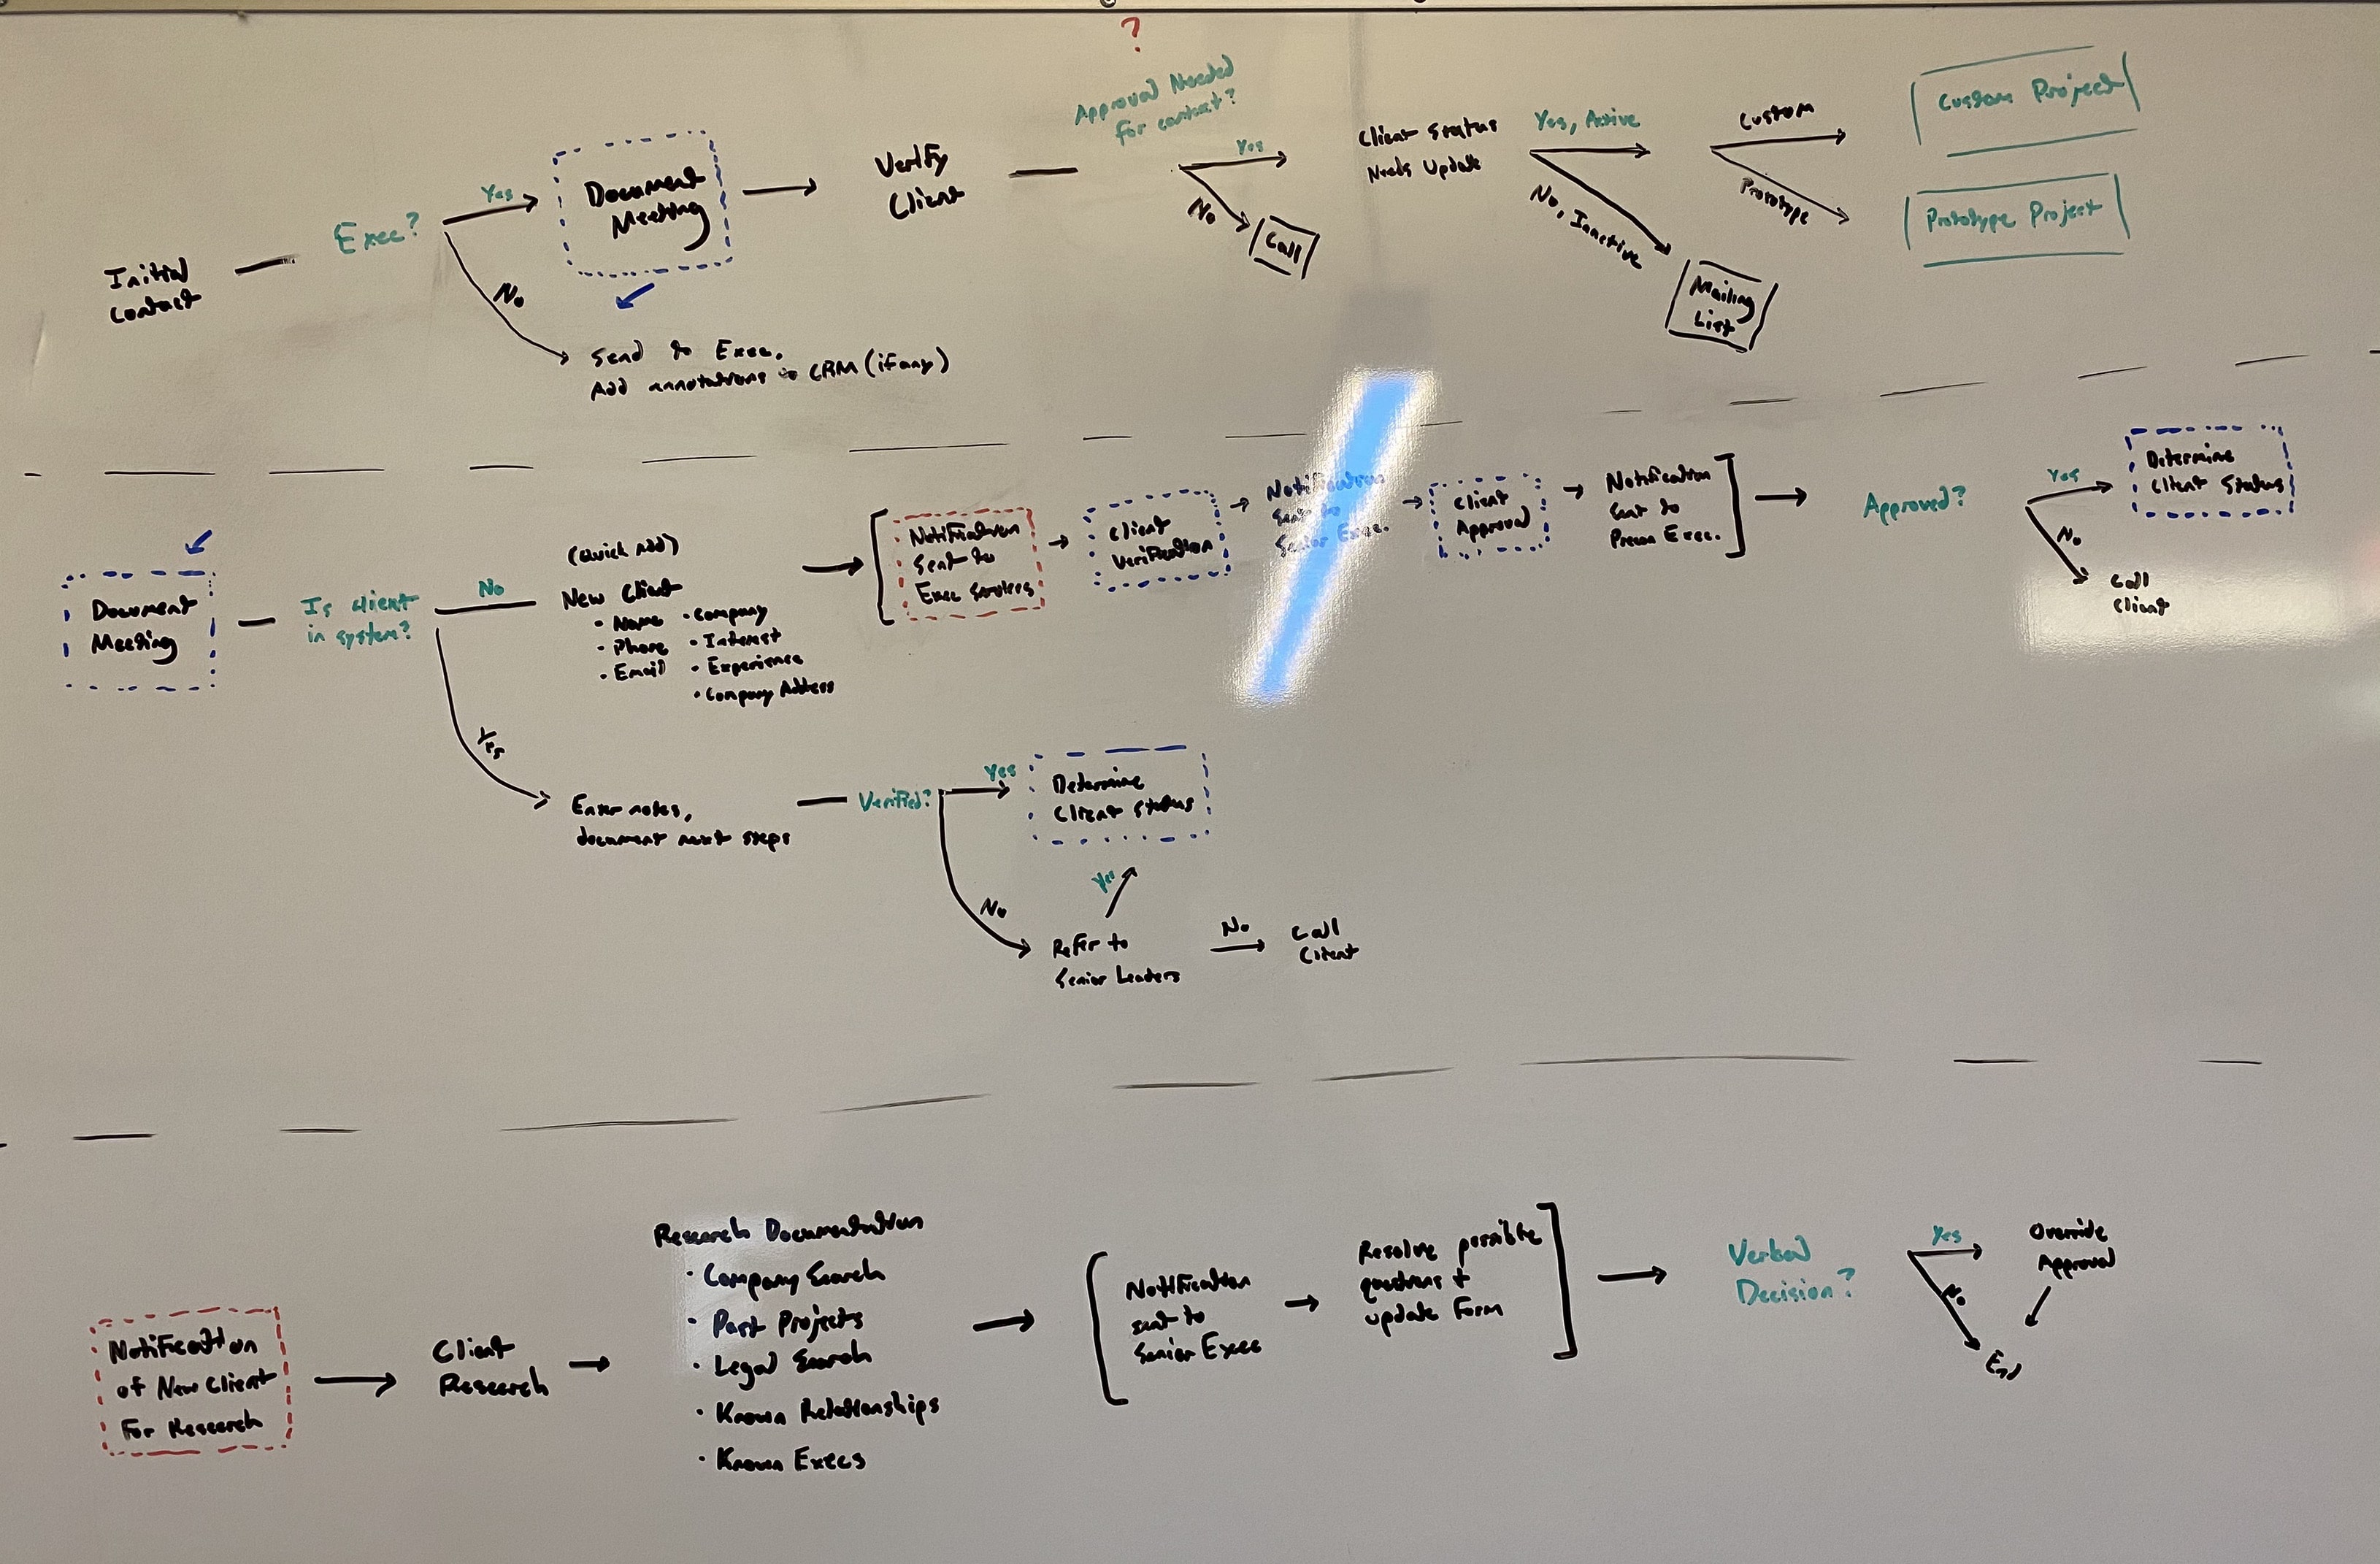 ?
Approval Needed
for contact?
Initial
Contact
Exec?
Yes
No
Document
Meeting
Send to Exec.
Add annotations to CRM (if any)
Verify
Client
Yes
No
Call
Client Status
Needs Update
Yes, Active
No, Inactive
Mailing
List
Custom
Prototype
Custom Project
Prototype Project
Document
Meeting
Is client
in system?
No
Yes
(Quick Add)
New Client
• Name
• Phone
• Email
• Company
• Interest
• Experience
• Company Address
Notification
Sent to
Exec Services
Client
Verification
Notification
Sent to
Senior Exec.
Client
Approval
Notification
Sent to
Exec.
Approved?
Yes
No
Determine
Client Status
Call
Client
Enter notes,
document next steps
Verified?
Yes
No
Determine
Client Status
Yes
Refer to
Senior Leaders
No
Call
Client
Notification
of New Client
For Research
Client
Research
Research Documentation
• Company Search
• Past Projects
• Legal Search
• Known Relationships
• Known Execs
Notification
sent to
Senior Exec
Resolve possible
questions +
update Form
Verbal
Decision?
Yes
No
Override
Approval
End